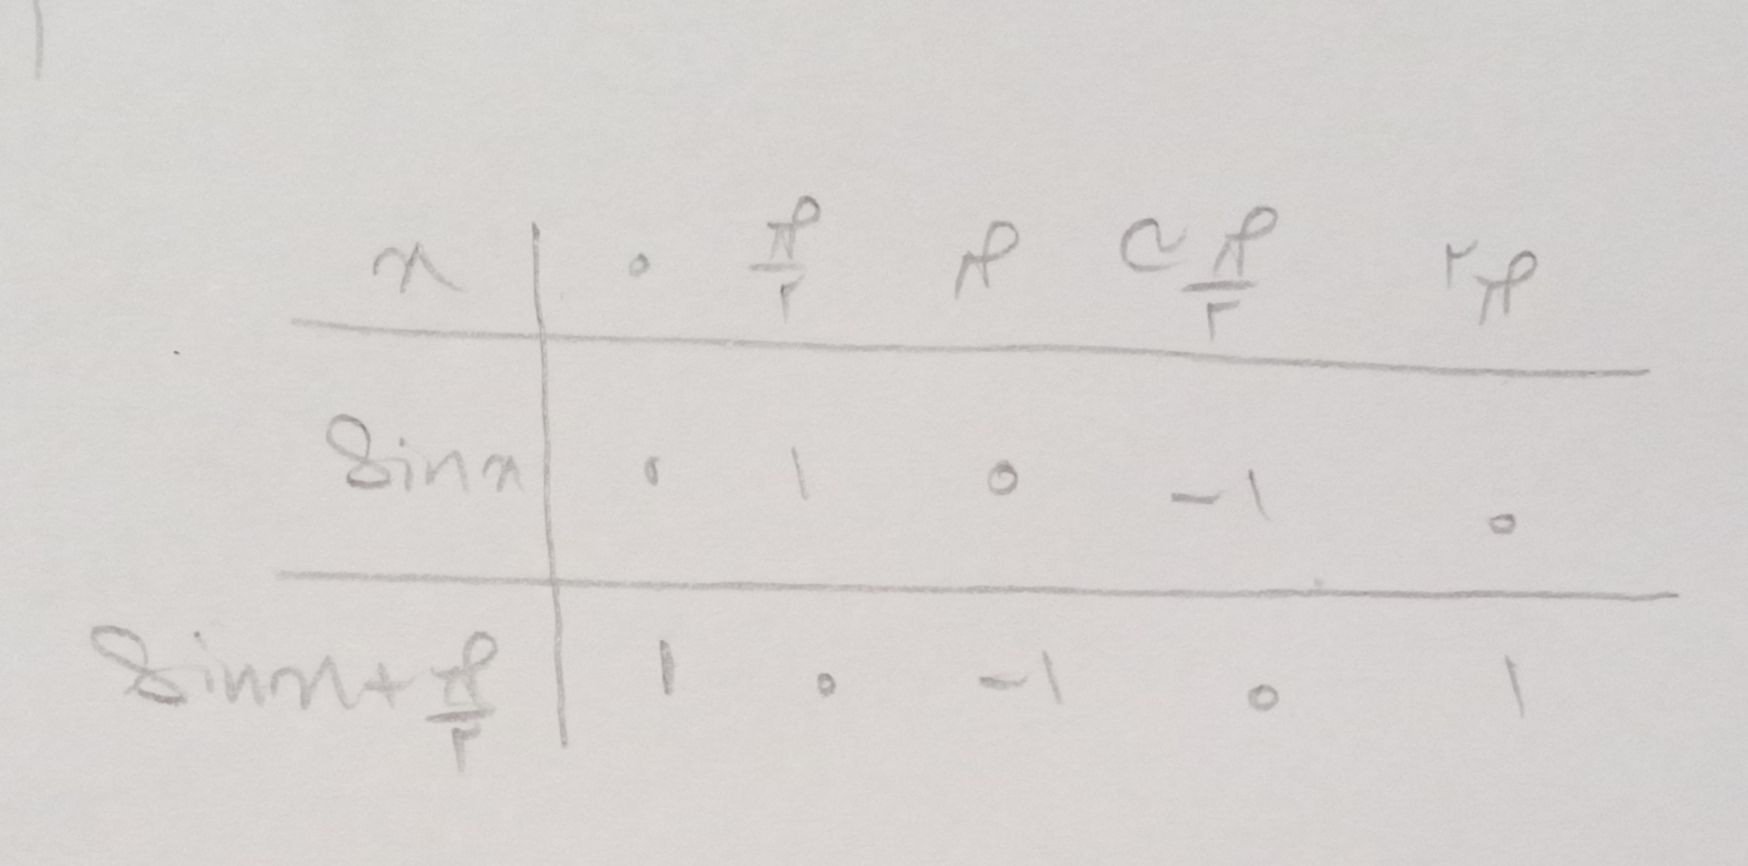 x | ۰ π/۲ π ۳π/۲ ۲π
Sinx | ۰ ۱ ۰ -۱ ۰
Sinx+π/۲ | ۱ ۰ -۱ ۰ ۱